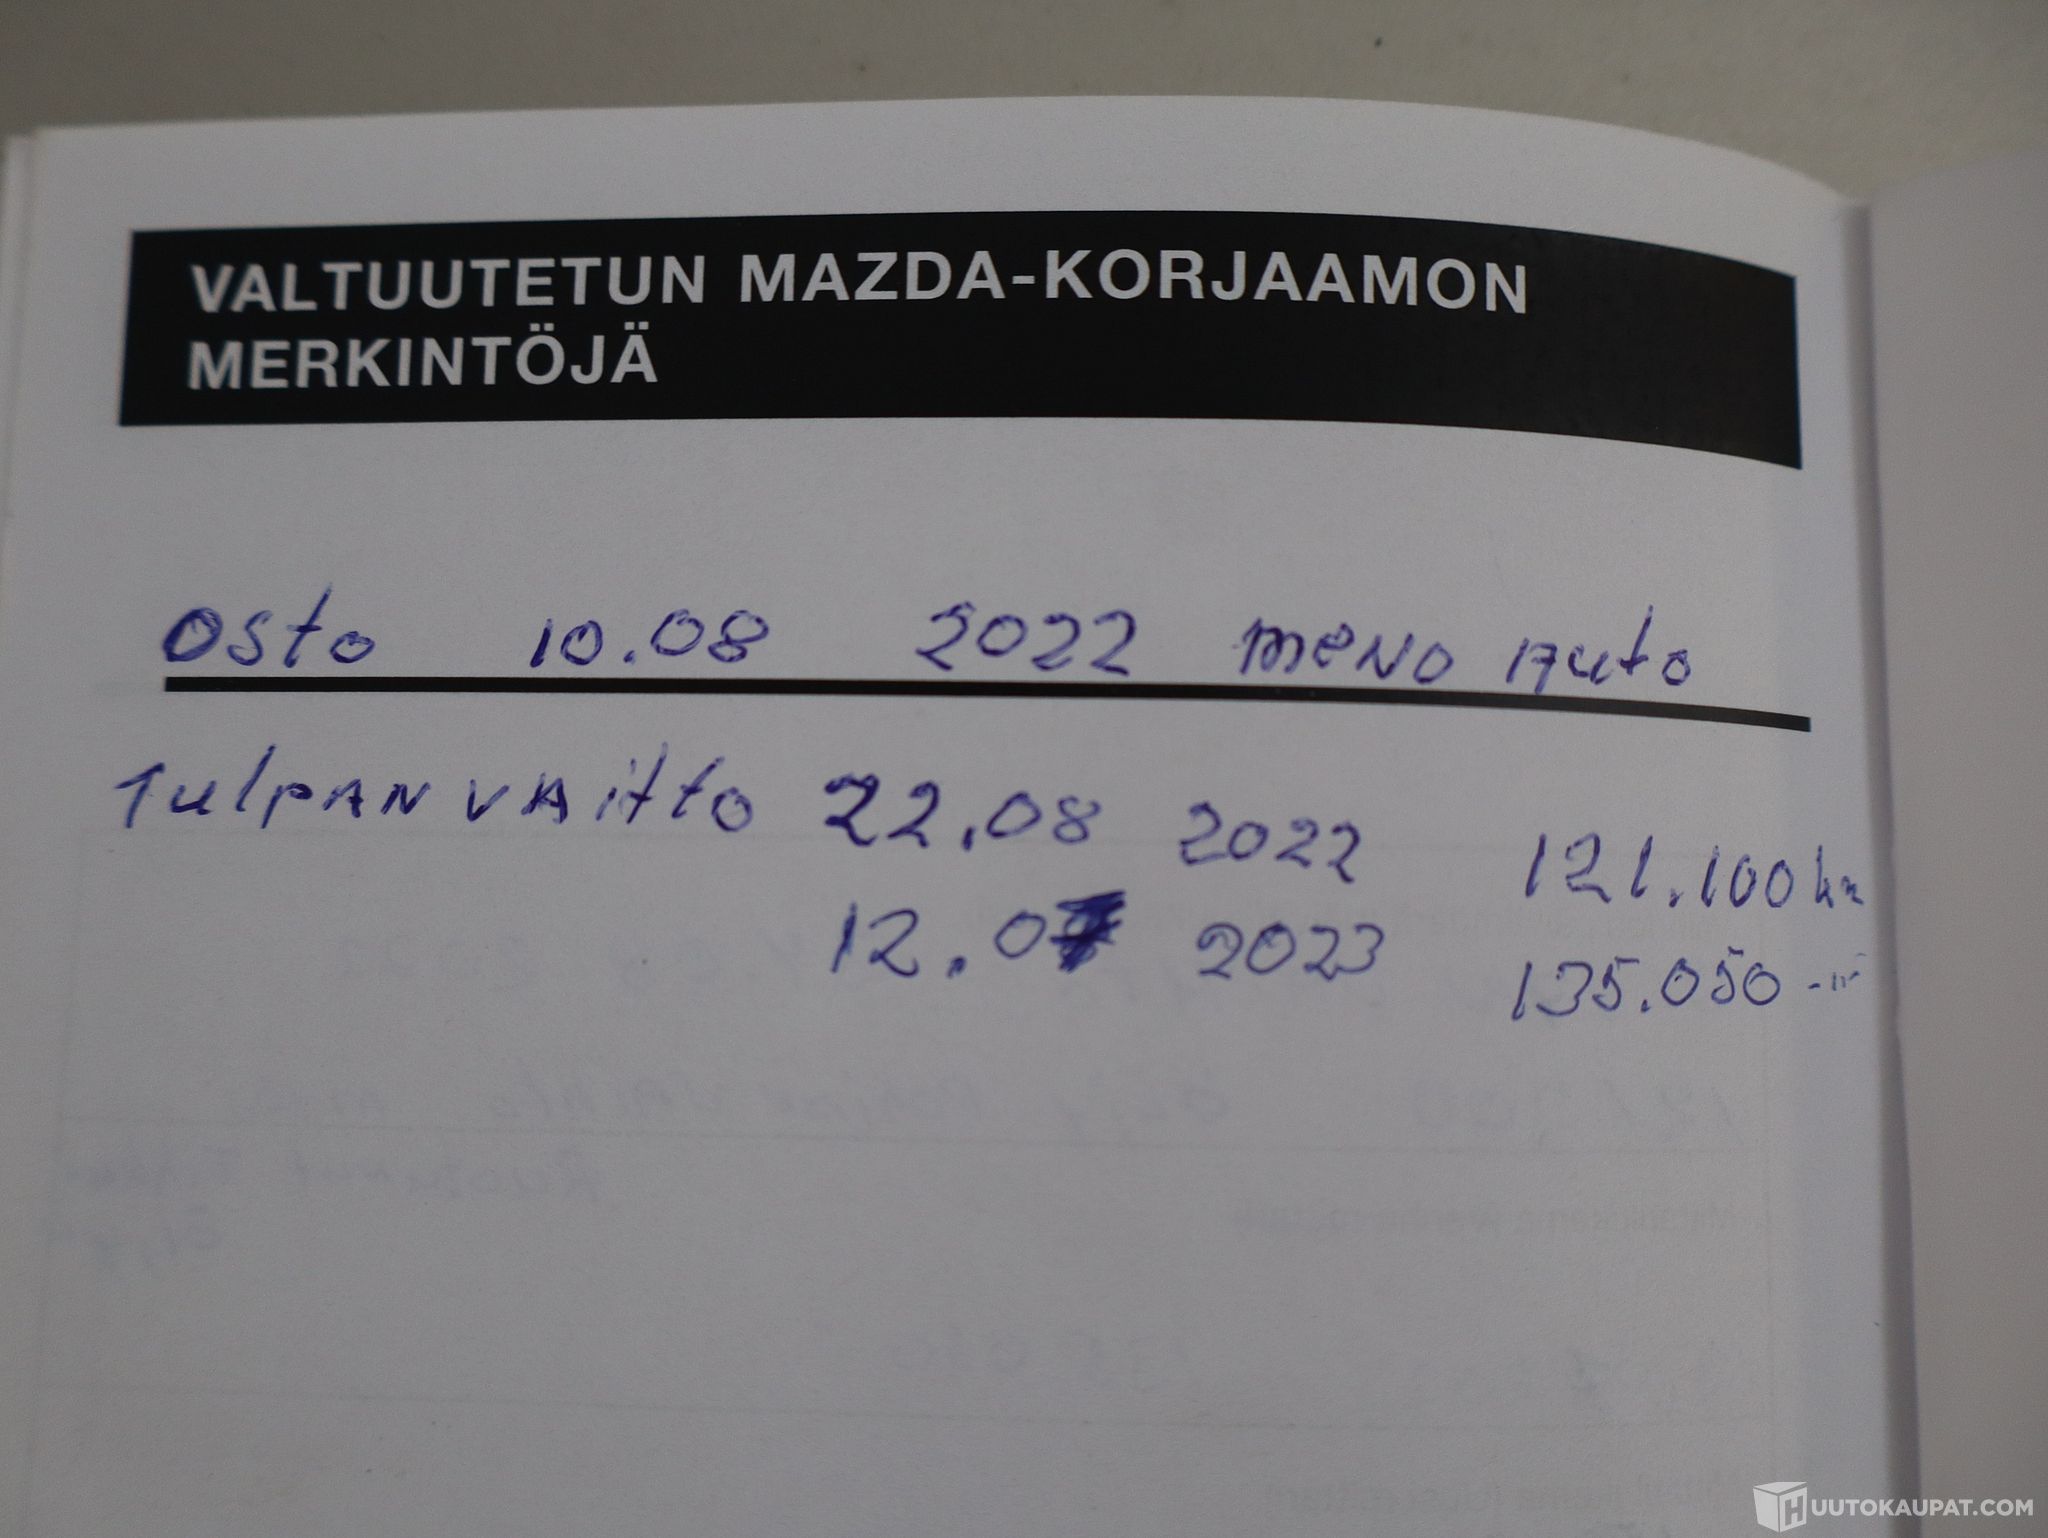 VALTUUTETUN MAZDA-KORJAAMON
MERKINTÖJÄ
Osto 10.08 2022 meno Auto
Tulpan vaihto 22.08 2022 121.100 km
12. 2023 135.050 -"-
HUUTOKAUPAT.COM